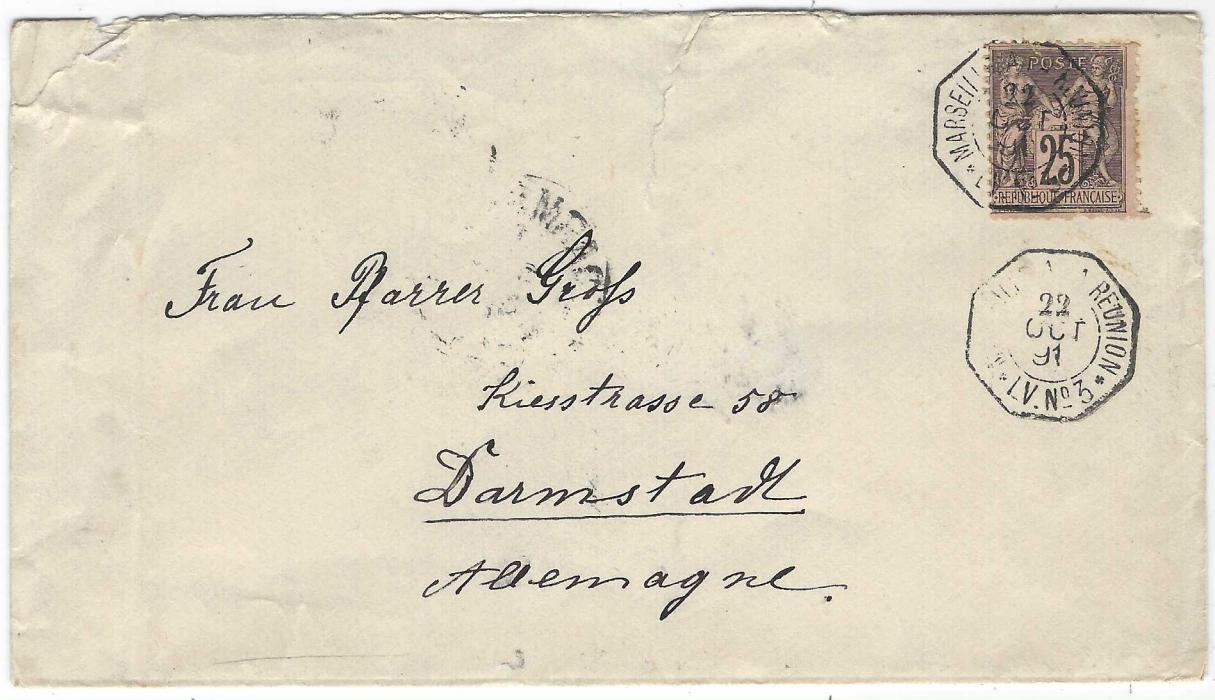 MARSEILL
22
OCT
91
POSTE
25
REPUBLIQUE FRANÇAISE
Frau Pfarrer Groß
REUNION
22
OCT
91
* L.V. No 3 *
Kiesstrasse 58
Darmstadt
Allemagne.